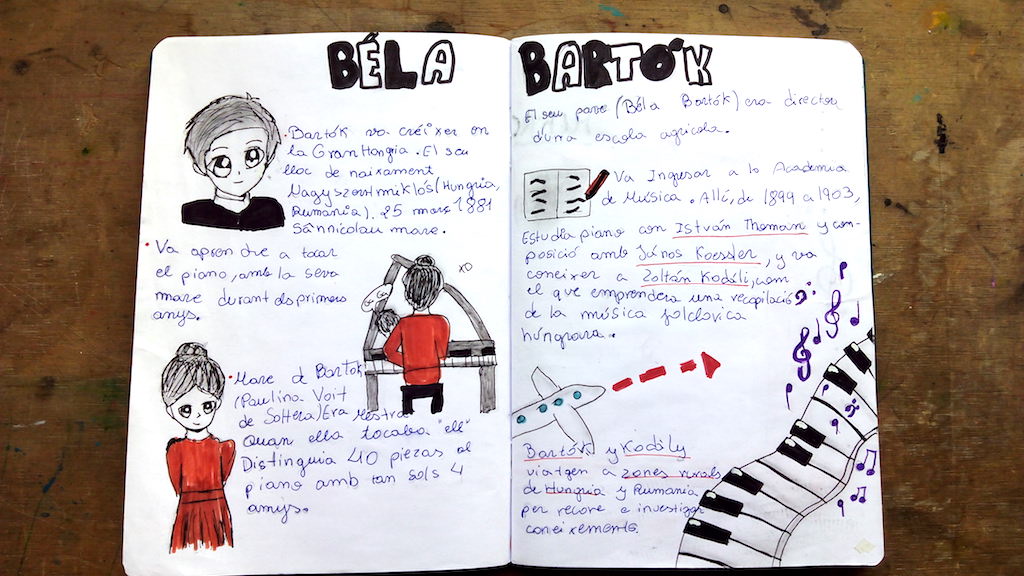 BÉLA BARTÓK
• Bartók va créixer en
la Gran Hongria. El seu
lloc de naixament
Nagyszentmiklós (Hungria,
Rumania). 25 març 1881
Sânnicolau mare.
• Va aprendre a tocar
el piano, amb la seva
mare durant els primers
anys.
XO
• Mare d Bartok
(Paulina Voit
de Soltera) Era Mestra
Quan ella tocaba "ell"
Distinguia 40 piezas al
piano amb tan sols 4
anys.
El seu pare (Béla Bartók) era director
d'una escola agrícola.
Va Ingresar a la Academia
de Música. Allí, de 1899 a 1903,
Estudia piano con István Thoman y com-
posició amb János Koessler, y va
coneixer a Zoltán Kodáli, com
el que emprendera una recopilació
de la música folclorica
húngrara.
Bartók y Kodály
viatgen a zones rurals
de Hungria y Rumania
per recore e investigar
coneixements.